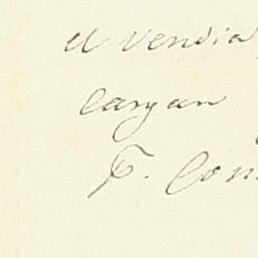 el vendia
cargan
F. Con